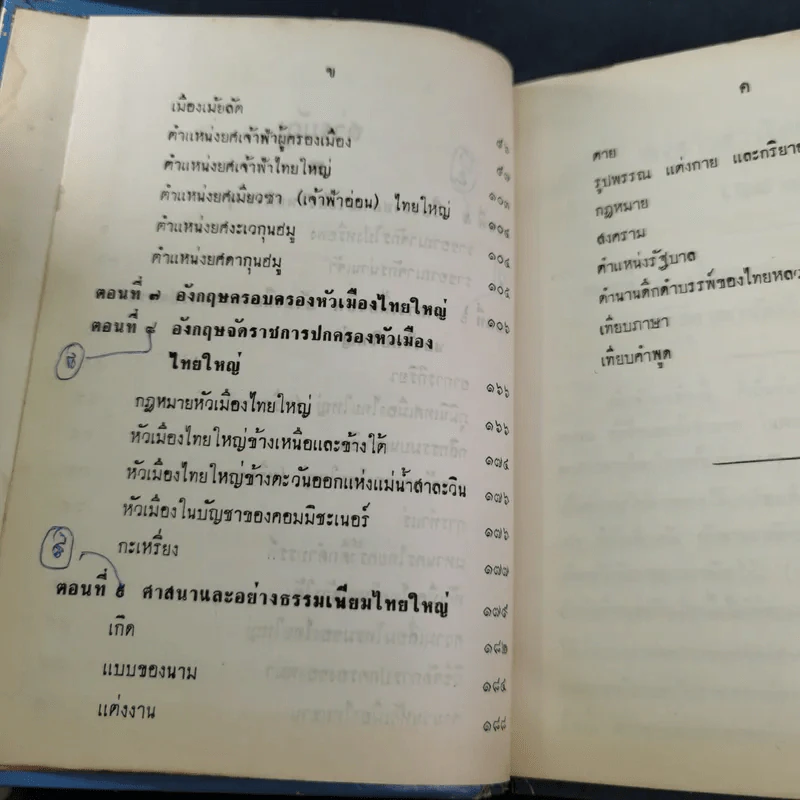 ข
เมืองเมัยลัต ๙๖
ตำแหน่งยศเจ้าฟ้าผู้ครองเมือง ๙๗
ตำแหน่งยศเจ้าฟ้าไทยใหญ่ ๑๐๓
ตำแหน่งยศเมียวซา (เจ้าฟ้าอ่อน) ไทยใหญ่ ๑๐๔
ตำแหน่งยศงะเวกุนฮมู ๑๐๔
ตำแหน่งยศตากุนฮมู ๑๐๕
ตอนที่ ๗ อังกฤษครอบครองหัวเมืองไทยใหญ่ ๑๐๖
ตอนที่ ๙ อังกฤษจัดราชการปกครองหัวเมือง
ไทยใหญ่ ๑๖๖
กฎหมายหัวเมืองไทยใหญ่ ๑๖๖
หัวเมืองไทยใหญ่ข้างเหนือและข้างใต้ ๑๗๔
หัวเมืองไทยใหญ่ข้างตะวันออกแห่งแม่น้ำสาละวิน ๑๗๖
หัวเมืองในบัญชาของคอมมิชะเนอร์ ๑๗๖
กะเหรี่ยง ๑๗๗
ตอนที่ ศาสนาและอย่างธรรมเนียมไทยใหญ่ ๑๗๙
เกิด ๑๘๒
แบบของนาม ๑๘๔
แต่งงาน ๑๘๘
ค
ตาย
รูปพรรณ แต่งกาย และกริยา
กฎหมาย
สงคราม
ตำแหน่งรัฐบาล
ตำนานดึกดำบรรพ์ของไทยหลว
เทียบภาษา
เทียบคำพูด